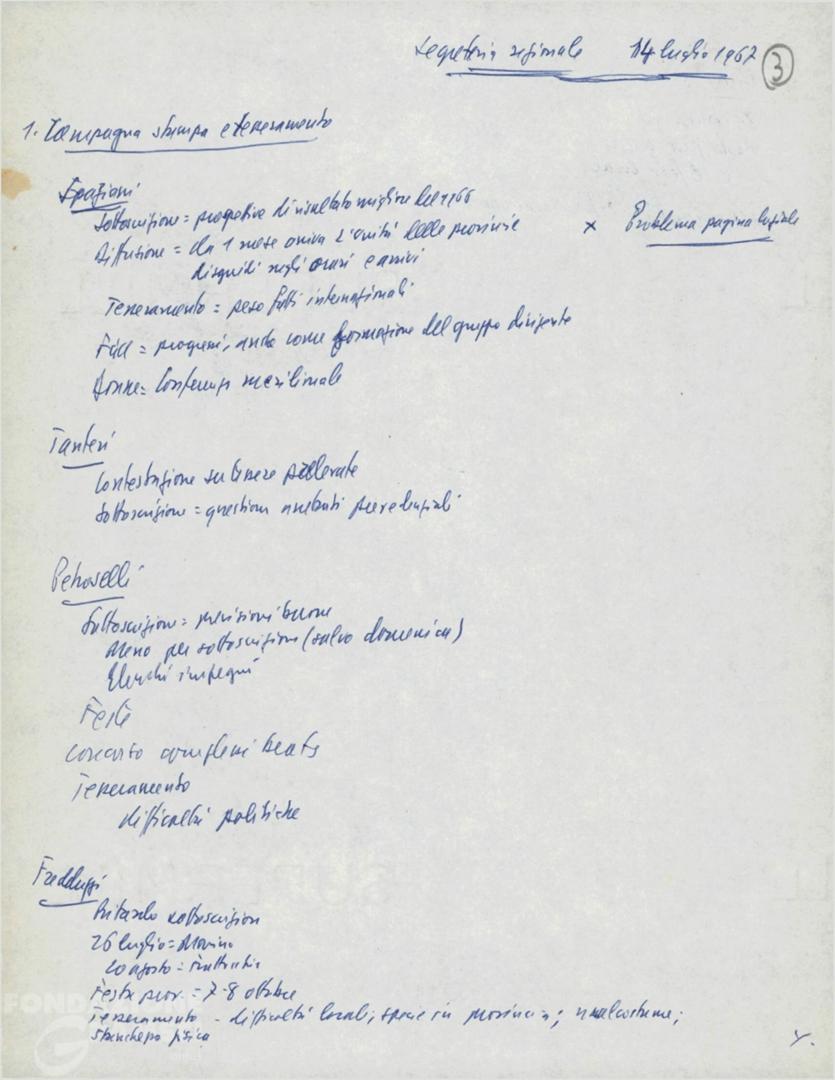 Segreteria regionale 14 luglio 1967 3
1. Campagna stampa e tesseramento
Spaziani
Sottoscrizione = prospettive di risultato migliore del 1966
Diffusione = da 1 mese arriva L'Unità delle provincie
disguidi negli orari e arrivi
x Problema pagina laziale
Tesseramento = peso fatti internazionali
Fgci = progressi, anche come formazione del gruppo dirigente
Donne = Conferenza meridionale
Tanteri
Contestazione su tessere
Sottoscrizione = questioni
Petroselli
Sottoscrizione = previsioni buone
Meno per sottoscrizioni (salvo domenica)
Elenchi impegni
Feste
concorso complessi beats
Tesseramento
difficoltà politiche
Fredduzzi
Ritardo sottoscrizion
26 luglio = Marino
20 agosto = Frattocchie
Festa prov. = 7-8 ottobre
Tesseramento - difficoltà locali, specie in provincia; malcostume;
stanchezza fisica
FONDAZ
G